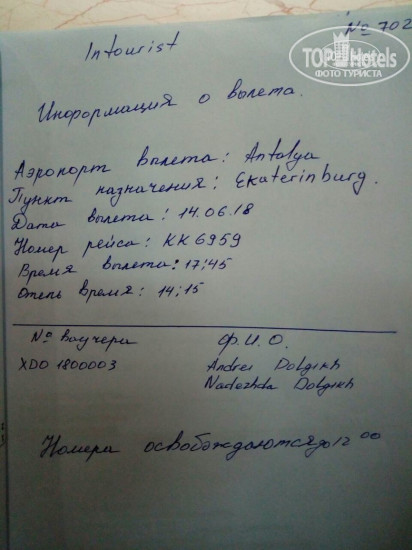 № 702
Intourist
TOPHotels
ФОТО ТУРИСТА
Информация о вылета.
Аэропорт вылета: Antalya
Пункт назначения: Ekaterinburg.
Дата вылета: 14.06.18
Номер рейса: KK6959
Время вылета: 17:45
Отель время: 14:15
№ ваучера Ф.И.О.
XDO 1800003 Andrei Dolgikh
Nadezhda Dolgikh
Номера освобождаются до 12 00